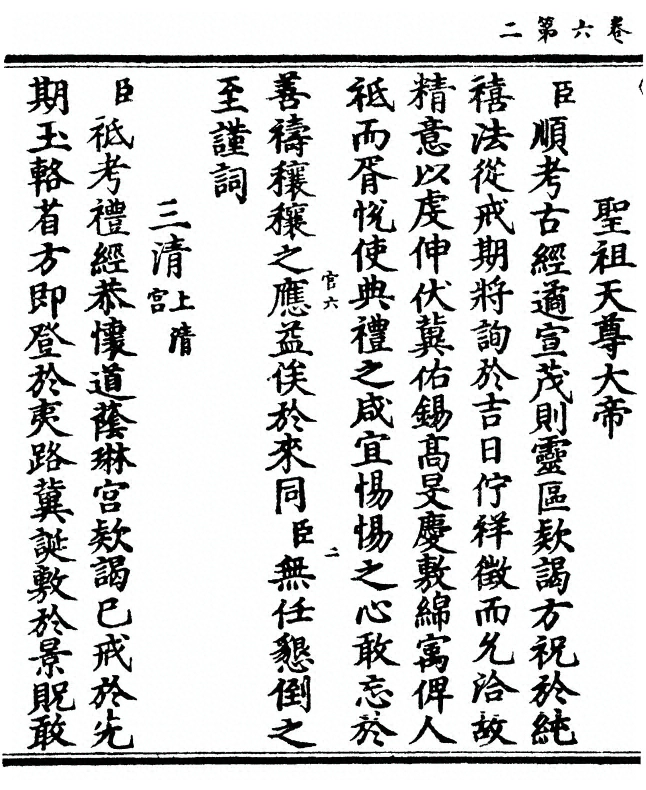 卷六第二
聖祖天尊大帝
臣順考古經遹宣茂則靈區欵謁方祝於純
禧法從戒期將詢於吉日佇祥徵而允洽敢
精意以虔伸伏冀佑錫高旻慶敷綿寓俾人
祇而胥悅使典禮之咸宜惕惕之心敢忘於
官六 二
善禱穰穰之應益俟於來同臣無任懇倒之
至謹詞
三清上清宮
臣祗考禮經恭懷道蔭琳宮欵謁已戒於先
期玉輅省方即登於夷路冀誕敷於景貺敢